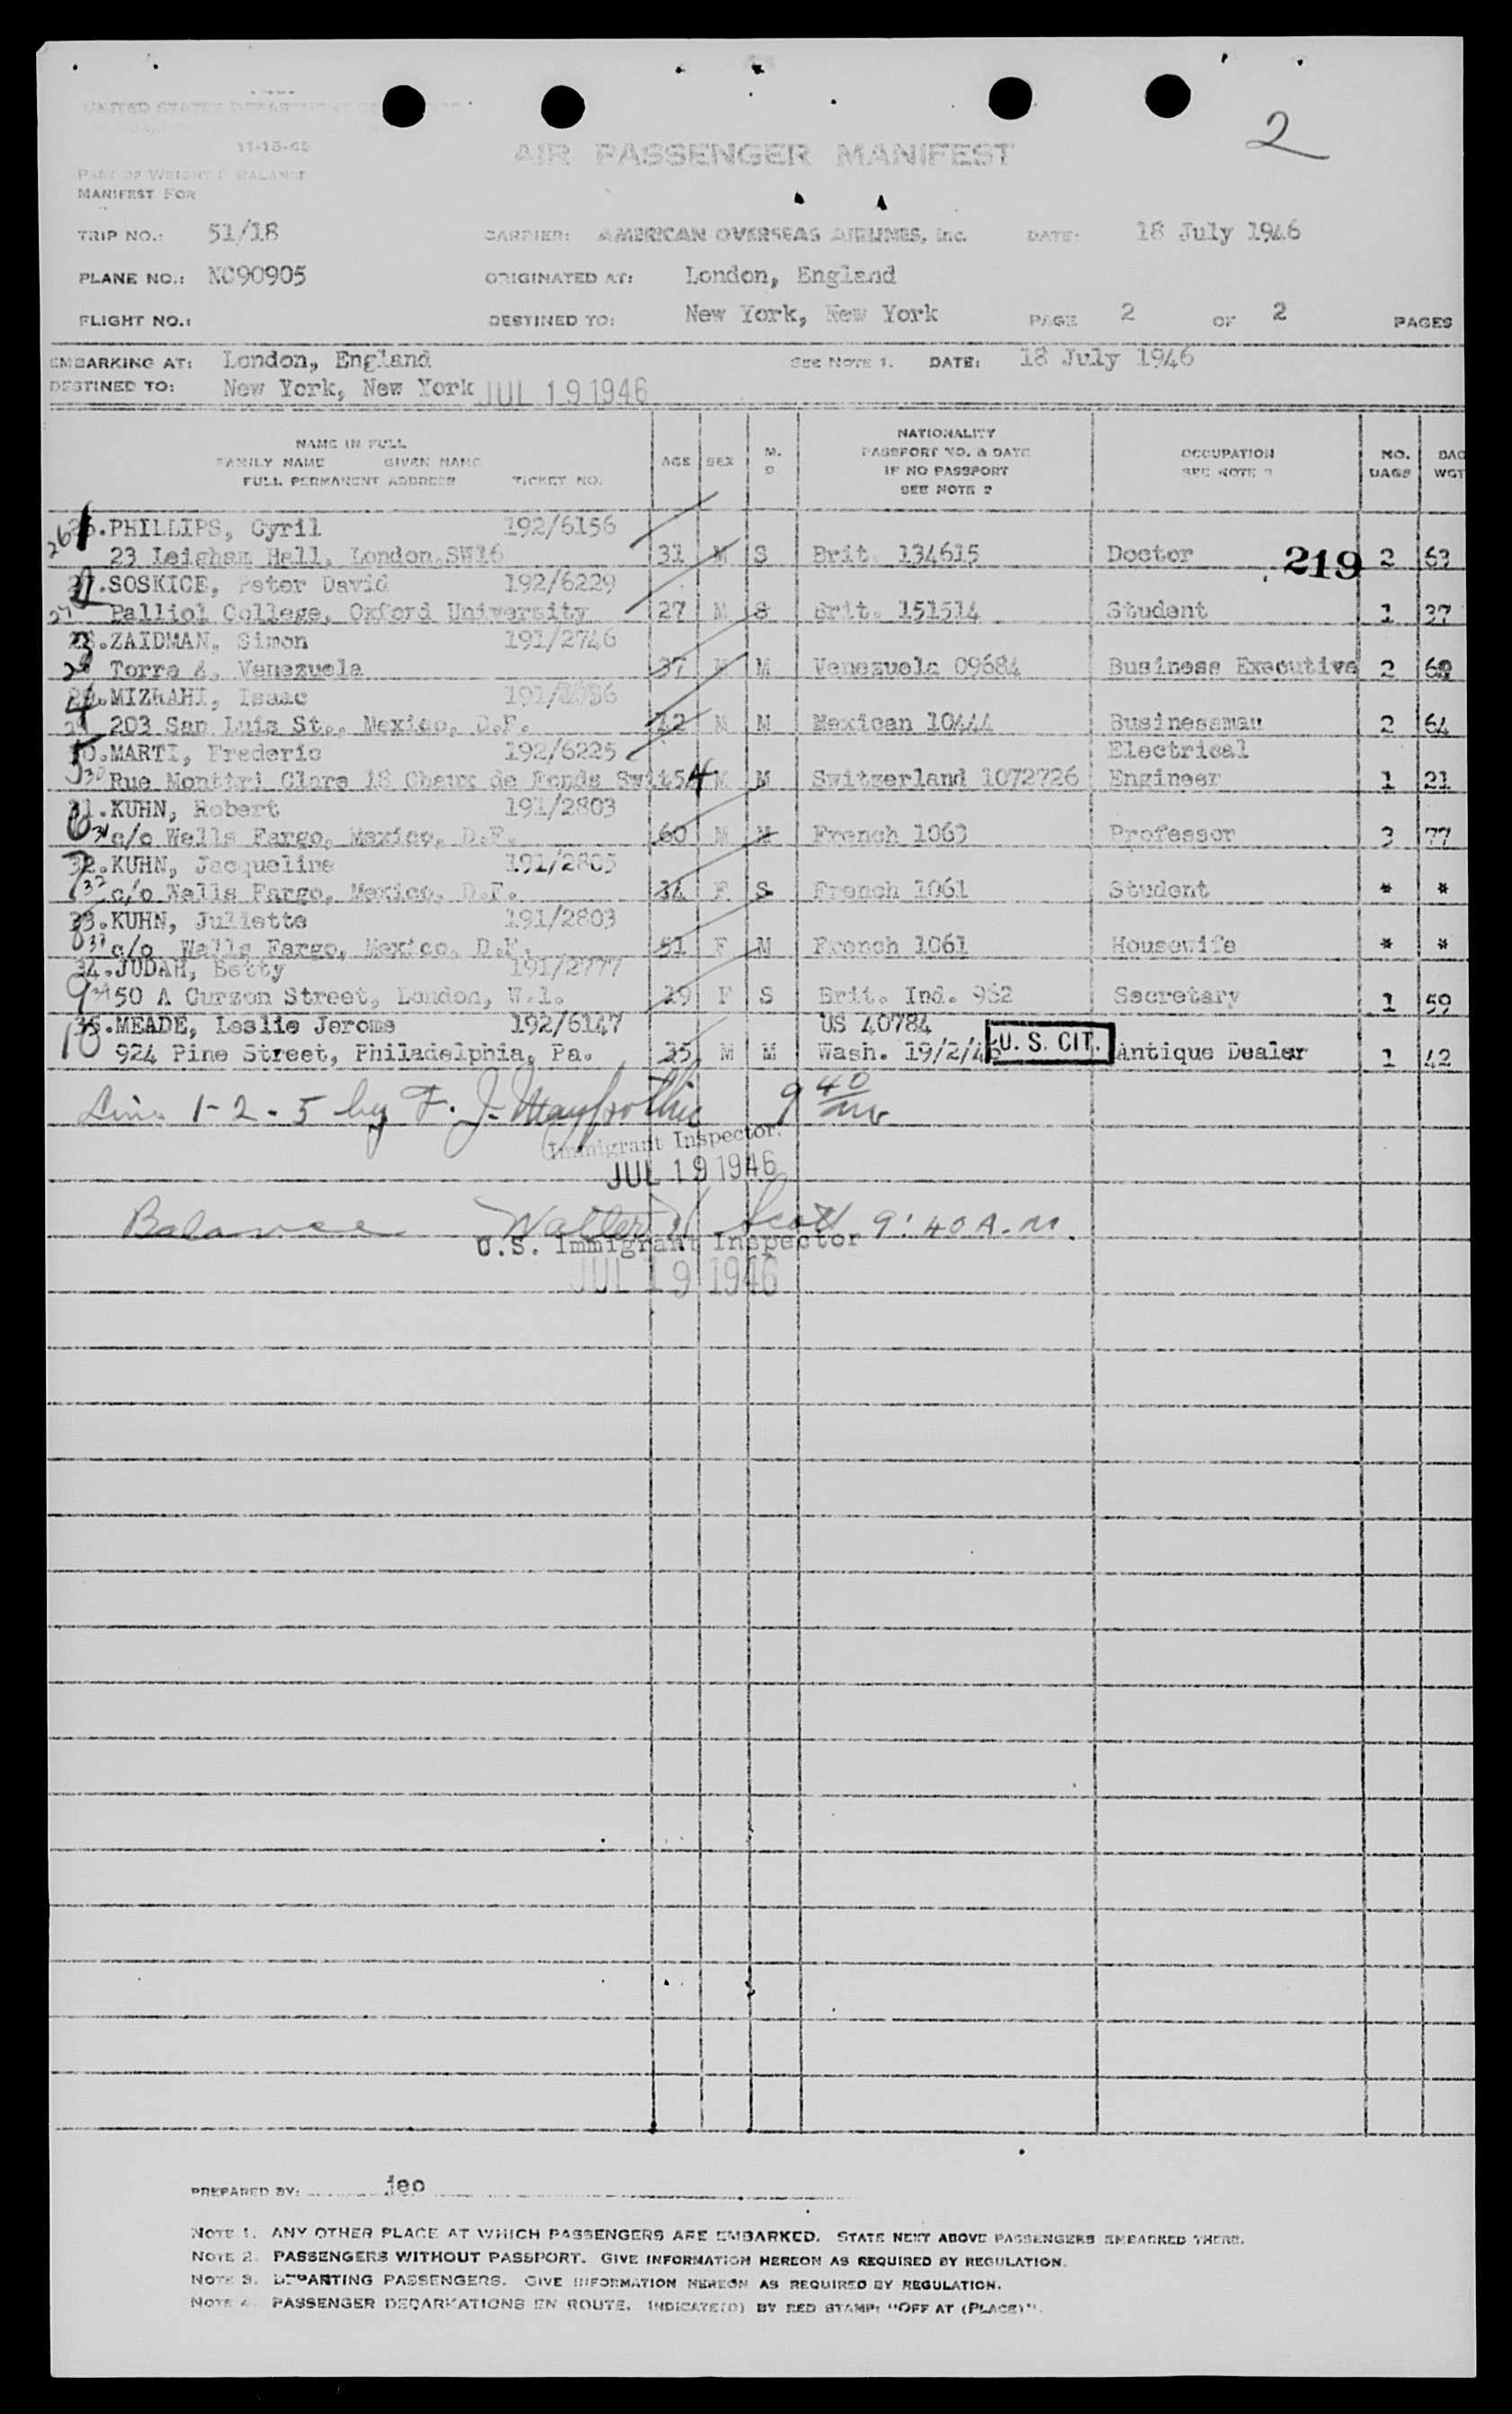 2
UNITED STATES DEPARTMENT OF
11-15-45
AIR PASSENGER MANIFEST
PART OF WEIGHT & BALANCE
MANIFEST FOR
TRIP NO.: 51/18 CARRIER: AMERICAN OVERSEAS AIRLINES, Inc. DATE: 18 July 1946
PLANE NO.: NC90905 ORIGINATED AT: London, England
FLIGHT NO.: DESTINED TO: New York, New York PAGE 2 OF 2 PAGES
EMBARKING AT: London, England SEE NOTE 1. DATE: 18 July 1946
DESTINED TO: New York, New York JUL 19 1946
NAME IN FULL
FAMILY NAME GIVEN NAME
FULL PERMANENT ADDRESS TICKET NO. AGE SEX M. S NATIONALITY
PASSPORT NO. & DATE
IF NO PASSPORT
SEE NOTE 2 OCCUPATION
SEE NOTE 3 NO.
BAGS BAG
WGT
26 1 PHILLIPS, Cyril 192/6156
23 Leigham Hall, London, SW16 31 M S Brit. 134615 Doctor 219 2 63
27 2 SOSKICE, Peter David 192/6229
Balliol College, Oxford University 27 M S Brit. 151514 Student 1 37
28 3 ZAIDMAN, Simon 191/2746
Torre &, Venezuela 37 M M Venezuela 09684 Business Executive 2
29 4 MIZRAHI, Isaac
203 San Luis St., Mexico, D.F. M M Mexican 10444 Businessman 2 64
30 5 MARTI, Frederic 192/6225 Electrical
Rue Montbri Clars 18 Chaux de Fonds Swit 54 M M Switzerland 1072726 Engineer 1 21
31. 6 KUHN, Robert 191/2803
31 c/o Wells Fargo, Mexico, D.F. 60 M M French 1063 Professor 3 77
32. 7 KUHN, Jacqueline 191/2803
32 c/o Wells Fargo, Mexico, D.F. 14 F S French 1061 Student * *
33. 8 KUHN, Juliette 191/2803
33 c/o Wells Fargo, Mexico, D.F. 51 F M French 1061 Housewife * *
34. JUDAH, Betty 191/2777
9 34 50 A Curzon Street, London, W.1. 29 F S Brit. Ind. 982 Secretary 1 59
35. MEADE, Leslie Jerome 192/6147 US 40784
10 924 Pine Street, Philadelphia, Pa. 35 M M Wash. 19/2/46 U. S. CIT. Antique Dealer 1 42
Line 1-2-5 by F. J. 9 40
Immigrant Inspector.
JUL 19 1946
Balance Walter H Scott 9:40 A.M.
U.S. Immigrant Inspector
JUL 19 1946
PREPARED BY: jeo
NOTE 1. ANY OTHER PLACE AT WHICH PASSENGERS ARE EMBARKED. STATE NEXT ABOVE PASSENGERS EMBARKED THERE.
NOTE 2. PASSENGERS WITHOUT PASSPORT. GIVE INFORMATION HEREON AS REQUIRED BY REGULATION.
NOTE 3. DEPARTING PASSENGERS. GIVE INFORMATION HEREON AS REQUIRED BY REGULATION.
NOTE 4. PASSENGER DEBARKATIONS EN ROUTE. INDICATE(D) BY RED STAMP: "OFF AT (PLACE)".